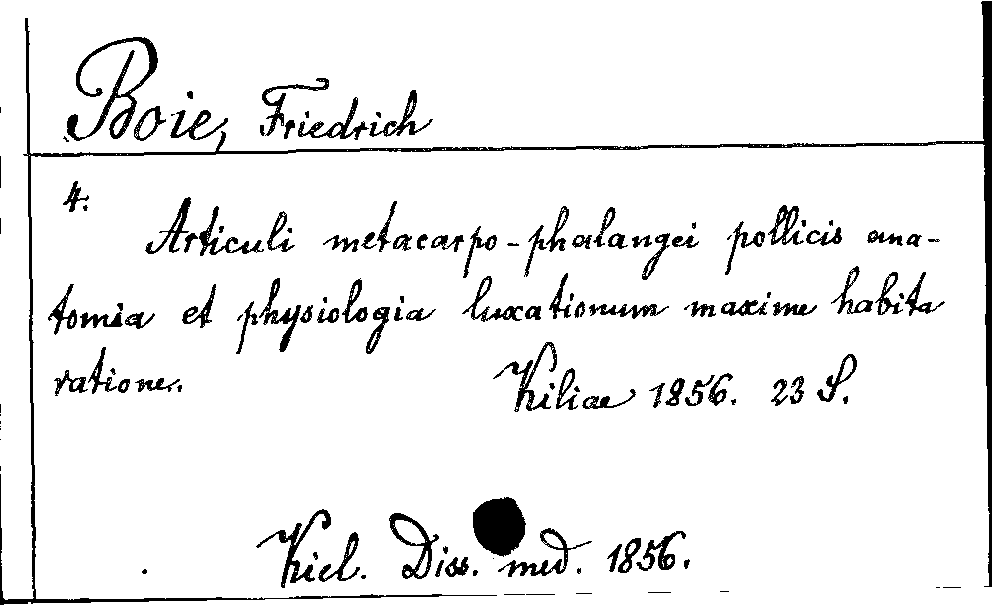 Boie, Friedrich
4.
Articuli metacarpo-phalangei pollicis ana-
tomia et physiologia luxationum maxime habita
ratione.
Kiliae 1856. 23 S.
Kiel. Diss. med. 1856.